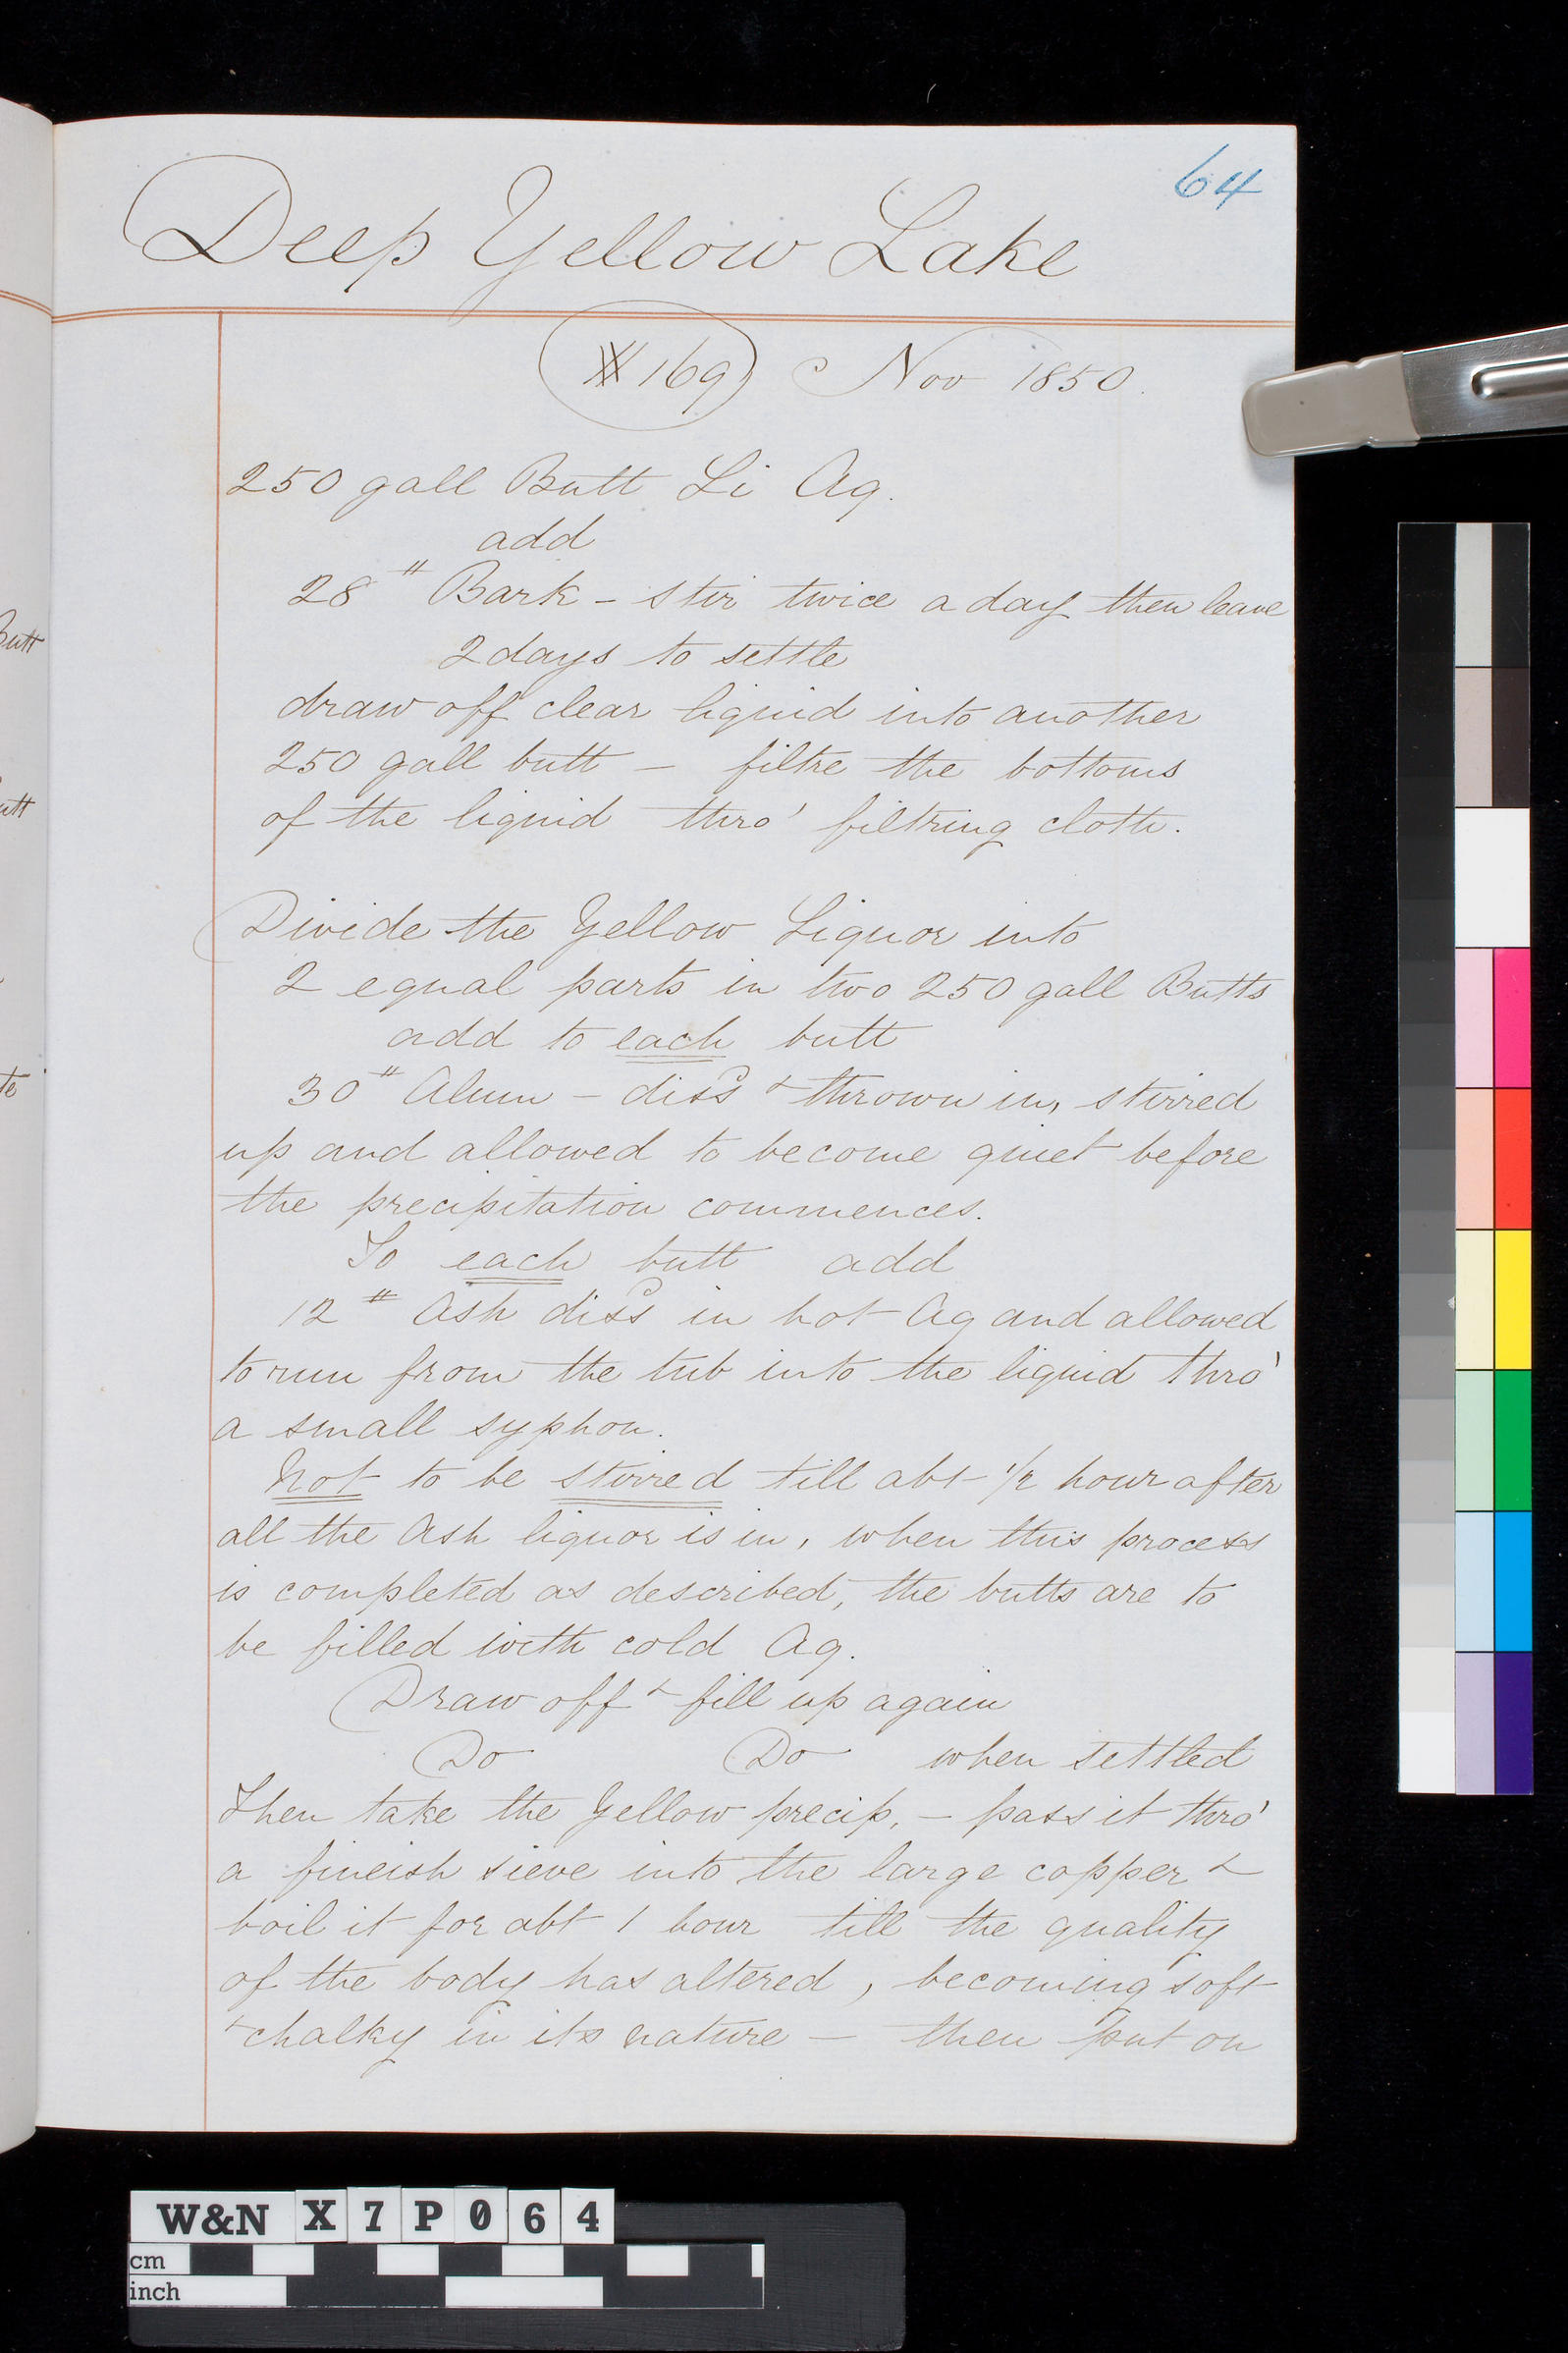 64
Deep Yellow Lake
169 Nov 1850.
250 gall Butt Li Aq.
add
28 # Bark - stir twice a day then leave
2 days to settle
draw off clear liquid into another
250 gall butt - filtre the bottoms
of the liquid thro' filtring cloth.
Divide the Yellow Liquor into
2 equal parts in two 250 gall Butts
add to each butt
30 # Alum - dissd & thrown in, stirred
up and allowed to become quiet before
the precipitation commences.
To each butt add
12 # Ash dissd in hot Aq and allowed
to run from the tub into the liquid thro'
a small syphon.
Not to be stirred till abt 1/2 hour after
all the Ash liquor is in, when this process
is completed as described, the butts are to
be filled with cold Aq.
Draw off & fill up again
Do Do when settled
Then take the Yellow precip. - pass it thro'
a fineish sieve into the large copper &
boil it for abt 1 hour till the quality
of the body has altered, becoming soft
& chalky in its nature - then put on
Butt
utt
te
W&N X7P064
cm
inch